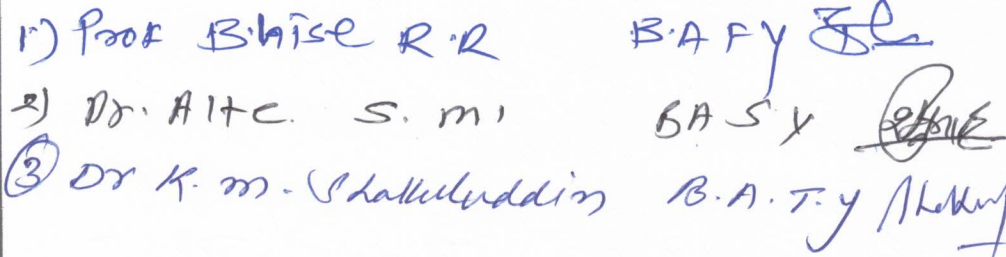 1) Prof Bhise R.R B.A F Y
2) Dr. Alte. S. m. BA S Y
3 Dr K. m. Shakiluddin B.A. T.y